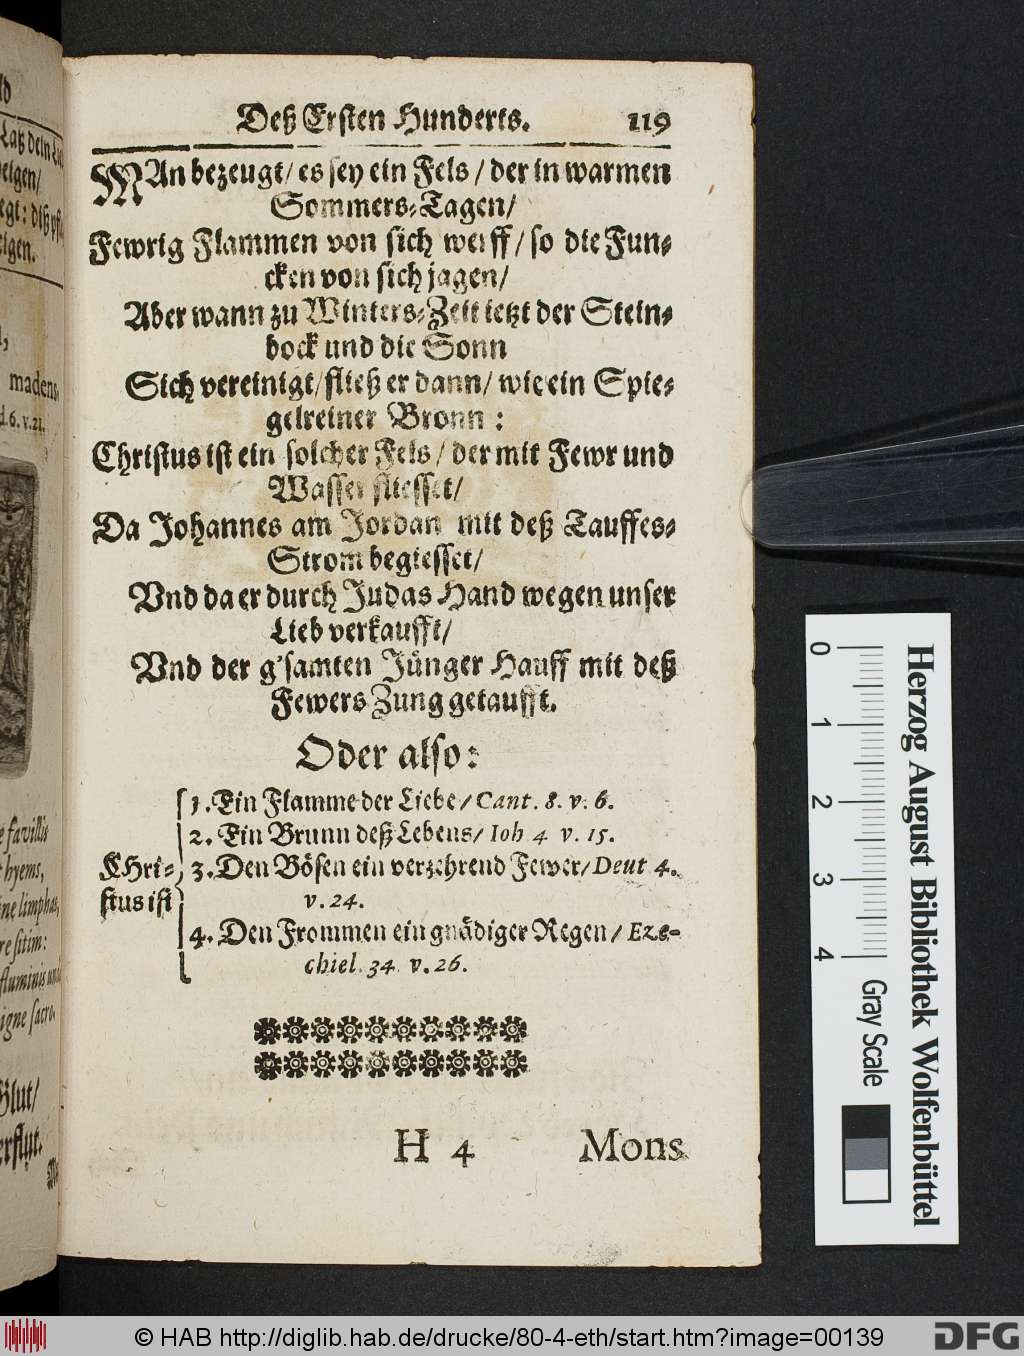 Deß Ersten Hunderts. 119
MAn bezeugt/ es sey ein Fels/ der in warmen
Sommers-Tagen/
Fewrig Flammen von sich werff/ so die Fun-
cken von sich jagen/
Aber wann zu Winters-Zeit ietzt der Stein-
bock und die Sonn
Sich vereinigt/ fließ er dann/ wie ein Spie-
gelreiner Bronn:
Christus ist ein solcher Fels/ der mit Fewr und
Wasser fliesset/
Da Johannes am Jordan mit deß Tauffes-
Strom begiesset/
Vnd da er durch Judas Hand wegen unser
Lieb verkaufft/
Vnd der g'samten Jünger Hauff mit deß
Fewers Zung getaufft.
Oder also:
CHri-
stus ist
1. Ein Flamme der Liebe/ Cant. 8. v. 6.
2. Ein Brunn deß Lebens/ Ioh 4 v. 15.
3. Den Bösen ein verzehrend Fewer/ Deut 4.
v. 24.
4. Den Frommen ein gnädiger Regen/ Eze-
chiel. 34. v. 26.
H 4 Mons
madens,
d. 6. v. 21.
e favillis
hyems,
ne limphas,
re sitim:
fluminis und
igne sacro.
Blut/
0 1 2 3 4
Herzog August Bibliothek Wolfenbüttel
Gray Scale
© HAB http://diglib.hab.de/drucke/80-4-eth/start.htm?image=00139
DFG